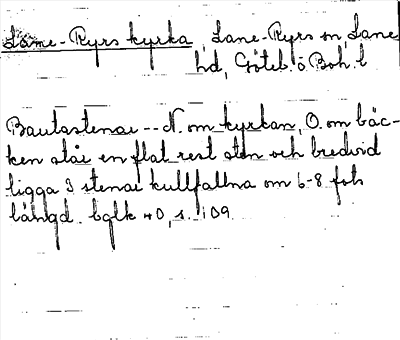 Lane-Ryrs kyrka, Lane-Ryrs sn, Lane
hd, Göteb. o Boh. l.
Bautastenar -- N. om kyrkan, O. om bäc-
ken står en flat rest sten och bredvid
ligga 3 stenar kullfallna om 6-8 fots
längd. bglk 40, s. 109